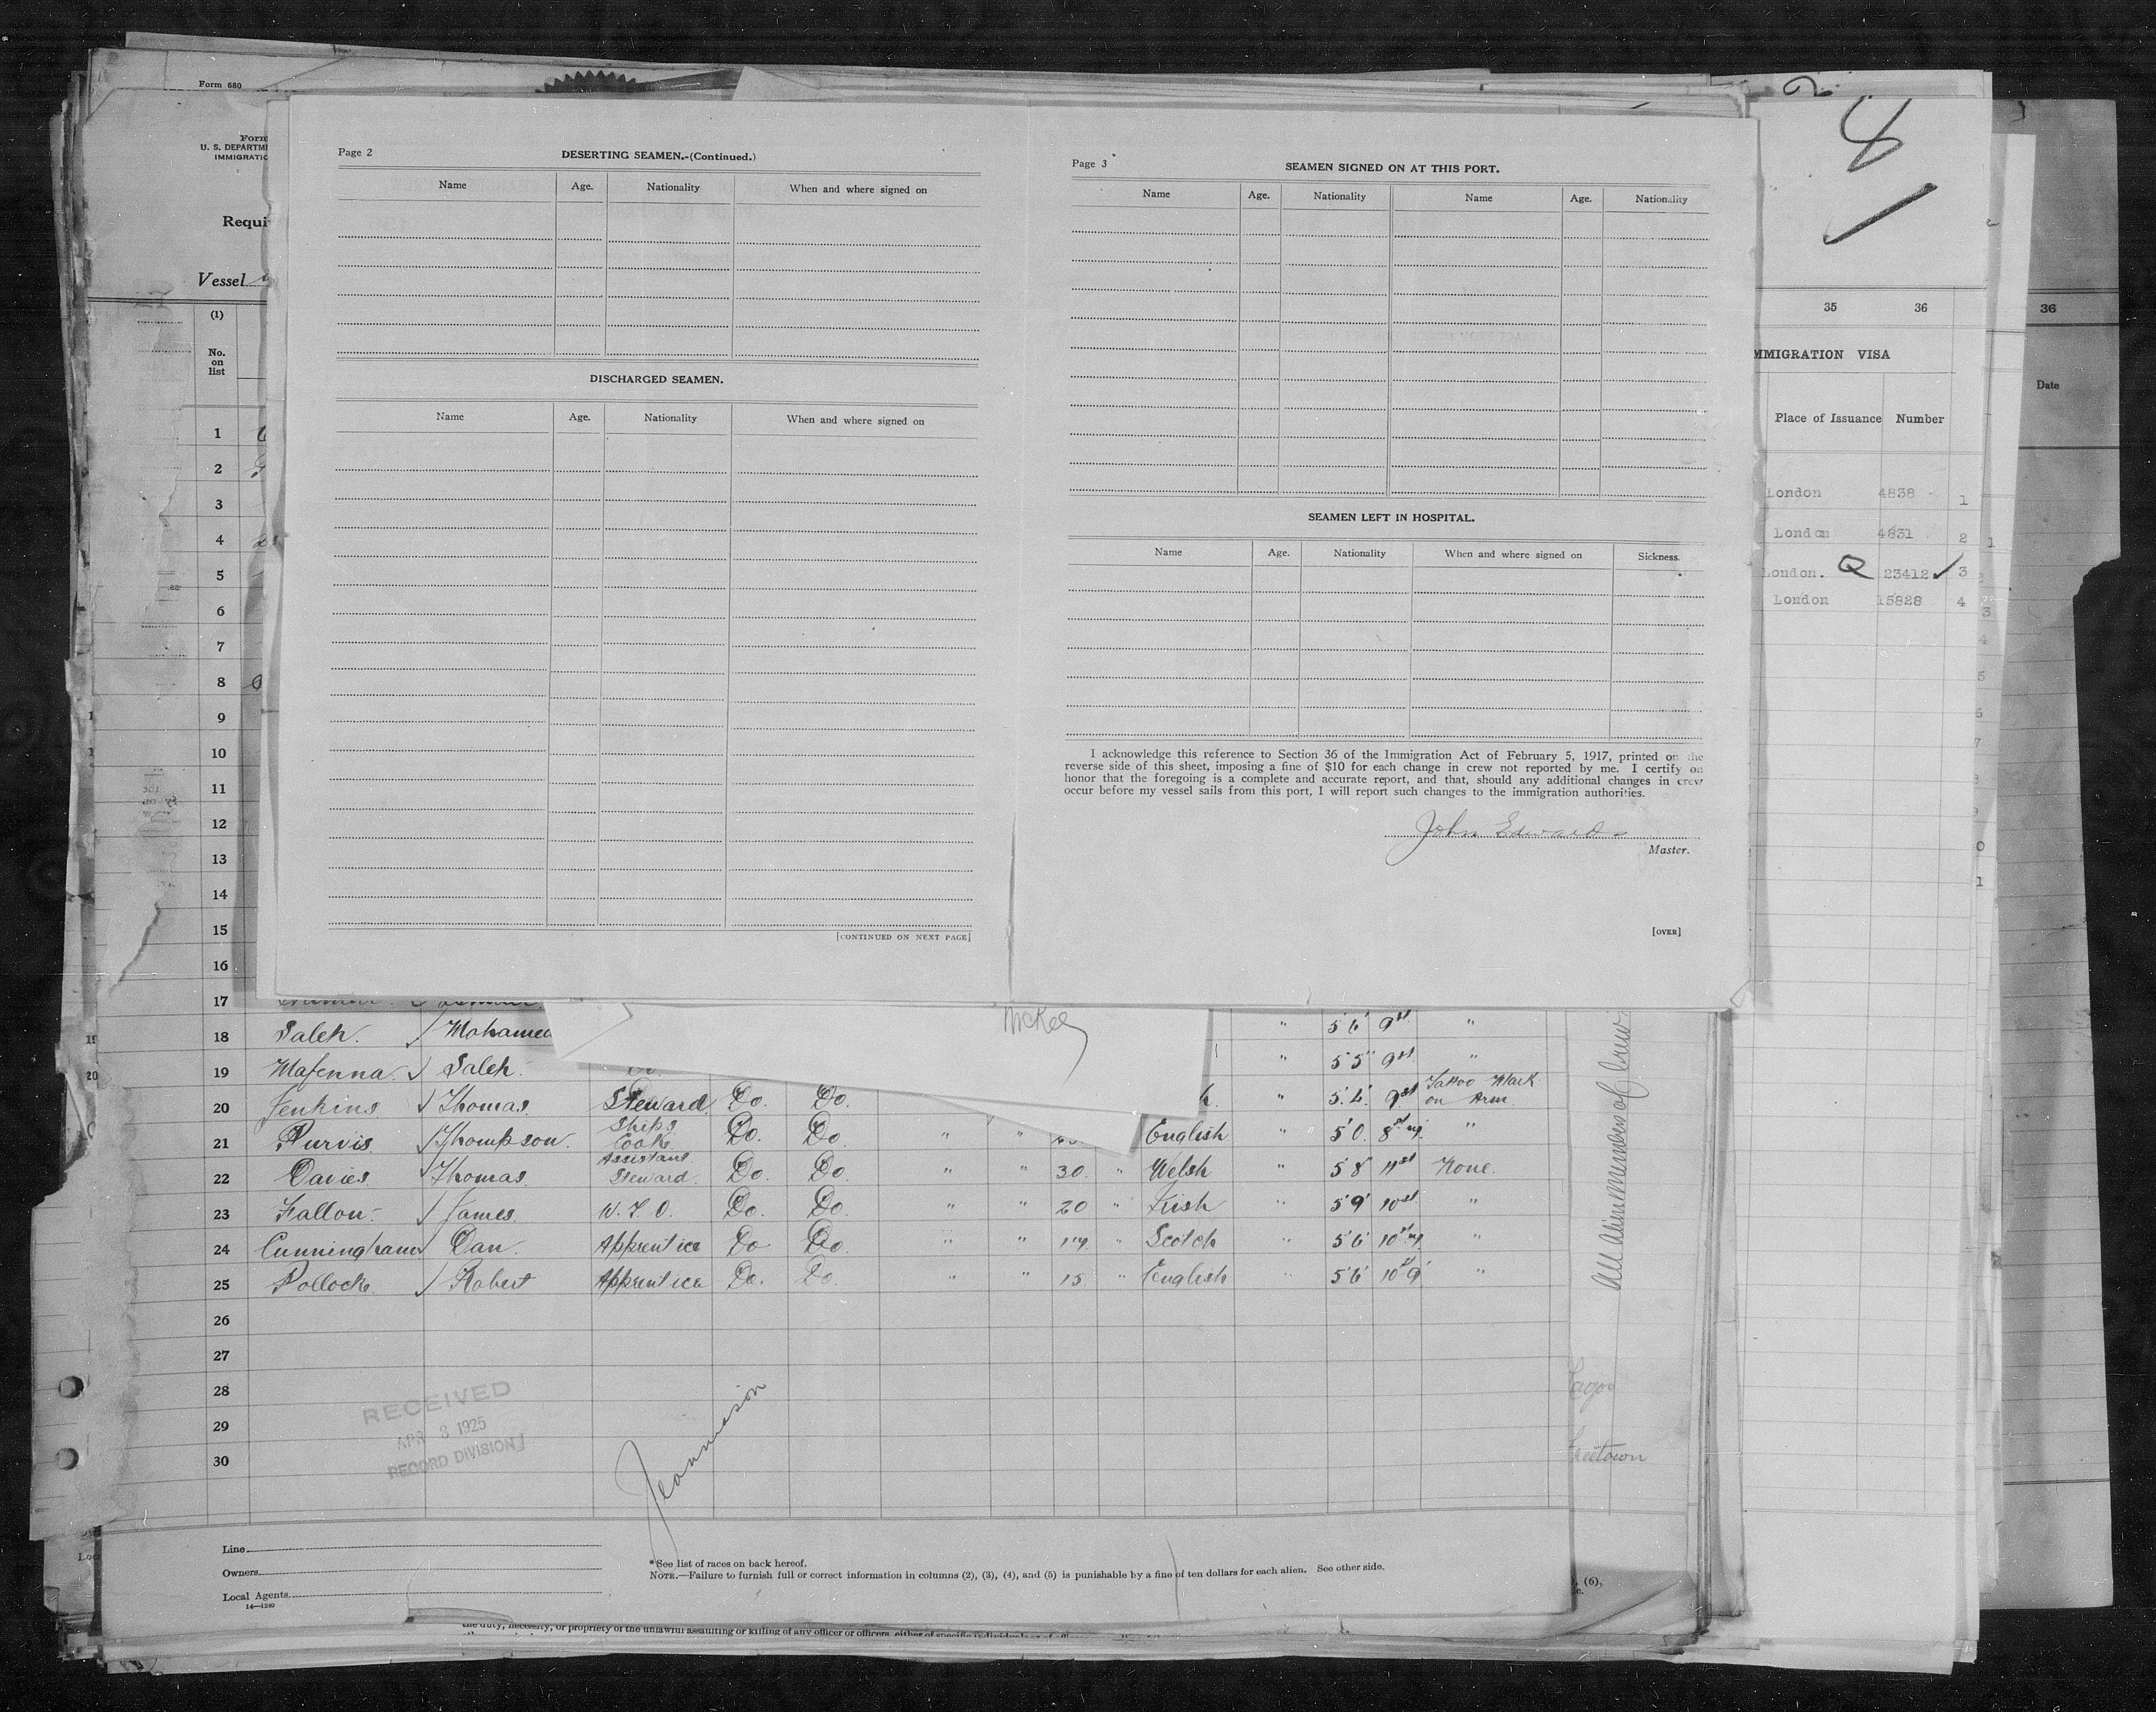 Form 680
Form
U. S. DEPARTM
IMMIGRATIO
Requi
Vessel
(1)
No.
on
list
1
2
3
4
5
6
7
8
9
10
11
12
13
14
15
16
17
Page 2
DESERTING SEAMEN.-(Continued.)
Name Age. Nationality When and where signed on
DISCHARGED SEAMEN.
Name Age. Nationality When and where signed on
[CONTINUED ON NEXT PAGE]
Page 3
SEAMEN SIGNED ON AT THIS PORT.
Name Age. Nationality Name Age. Nationality
SEAMEN LEFT IN HOSPITAL.
Name Age. Nationality When and where signed on Sickness.
I acknowledge this reference to Section 36 of the Immigration Act of February 5, 1917, printed on the
reverse side of this sheet, imposing a fine of $10 for each change in crew not reported by me. I certify on
honor that the foregoing is a complete and accurate report, and that, should any additional changes in crew
occur before my vessel sails from this port, I will report such changes to the immigration authorities.
John Edwards
Master.
[OVER]
8
35 36
MMIGRATION VISA
Place of Issuance Number
London 4838 1
London 4831 2
London. Q 23412 ✓ 3
London 15828 4
36
Date
McKee
18 Saleh. / Mohamed " 5'6' 9st "
19 Mafenna. / Saleh. Do. " 5'5" 9st "
20 Jenkins / Thomas. Steward Do. Do. " 5'.4'. 9st Tattoo Mark on Arm.
21 Purvis / Thompson. Ships Cook Do. Do. " " English " 5'0. "
22 Davies Thomas. Assistant Steward. Do. Do. " " 30. " Welsh " 5'8 11st None.
23 Fallon. / James. W. T. O. Do. Do. " " 20 " Irish " 5'9' 10st "
24 Cunningham Dan. Apprentice Do Do. " " 17. " Scotch " 5'6' "
25 Pollock / Robert Apprentice Do. Do. " " 15. " English " 5'6' "
26
27
28
29
30
All alien members of Crew.
Lagos
Freetown
RECEIVED
APR 8 1925
RECORD DIVISION
Jeannieson
Line
Owners
Local Agents
14—1240
*See list of races on back hereof.
NOTE.—Failure to furnish full or correct information in columns (2), (3), (4), and (5) is punishable by a fine of ten dollars for each alien. See other side.
, (6),
the duty, necessity, or propriety of the unlawful assaulting or killing of any officer or officers, either of specific individuals or of